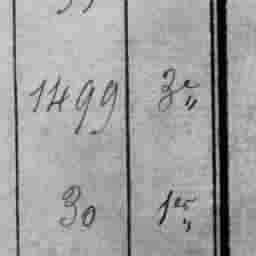 1499 3e
30 1er